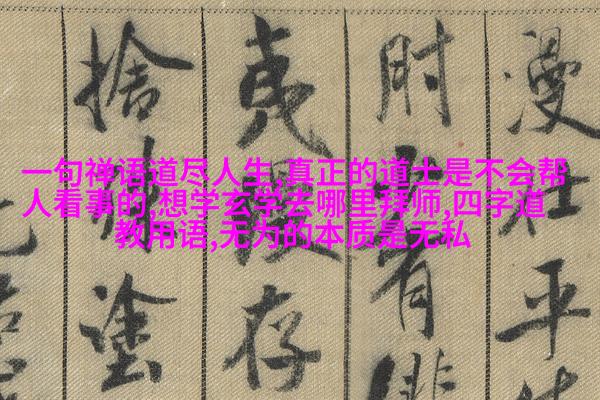 一句禅语道尽人生,真正的道士是不会帮
人看事的,想学玄学去哪里拜师,四字道
教用语,无为的本质是无私
漫仕平
肘有
夷存
捨塗